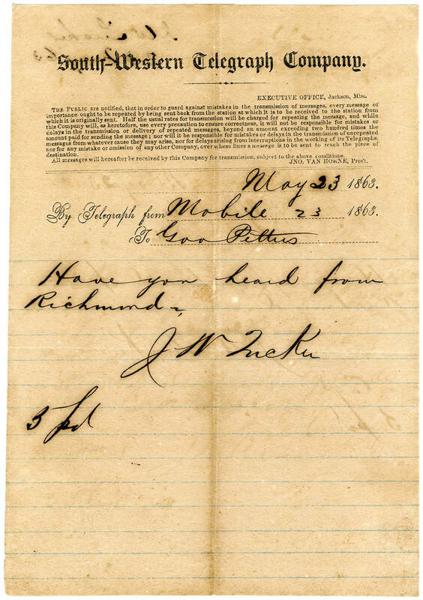 South-Western Telegraph Company.
EXECUTIVE OFFICE, Jackson, Miss.
THE PUBLIC are notified, that in order to guard against mistakes in the transmission of messages, every message of
importance ought to be repeated by being sent back from the station at which it is to be received to the station from
which it is originally sent. Half the usual rates for transmission will be charged for repeating the message, and while
this Company will, as heretofore, use every precaution to ensure correctness, it will not be responsible for mistakes or
delays in the transmission or delivery of repeated messages, beyond an amount exceeding two hundred times the
amount paid for sending the message; nor will it be responsible for mistakes or delays in the transmission of unrepeated
messages from whatever cause they may arise, nor for delays arising from interruptions in the working of its Telegraphs,
nor for any mistake or omission of any other Company, over whose lines a message is to be sent to reach the place of
destination.
All messages will hereafter be received by this Company for transmission, subject to the above conditions.
JNO. VAN HORNE, Pres't.
May 23 1863.
By Telegraph from Mobile 23 1863.
To Gov Pettus
Have you heard from
Richmond
J W Tucker
3 pd